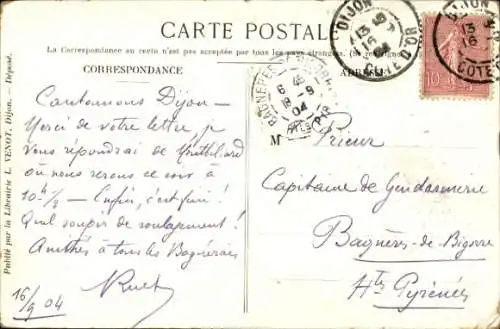 CARTE POSTALE
La Correspondance au recto n'est pas acceptée par tous les pays étrangers. (Se renseigner
CORRESPONDANCE
ADRESSE
DIJON
13 45
16 9
04
COTE D'OR
DIJON
13
16
COTE D'OR
10
BAGNERES DE BIGORRE
6
18 9
04
HTES PYR.
Cantonnons Dijon —
Merci de votre lettre, je
vous répondrai de Montbéliard
où nous serons ce soir à
10h 1/2 — Enfin, c'est fini !
Quel soupir de soulagement !
Amitiés à tous les Bagnérais
16/9 04
M Prieur
Capitaine de Gendarmerie
Bagnères-de-Bigorre
Htes Pyrénées
Publié par la Librairie L. VENOT, Dijon. — Déposé.